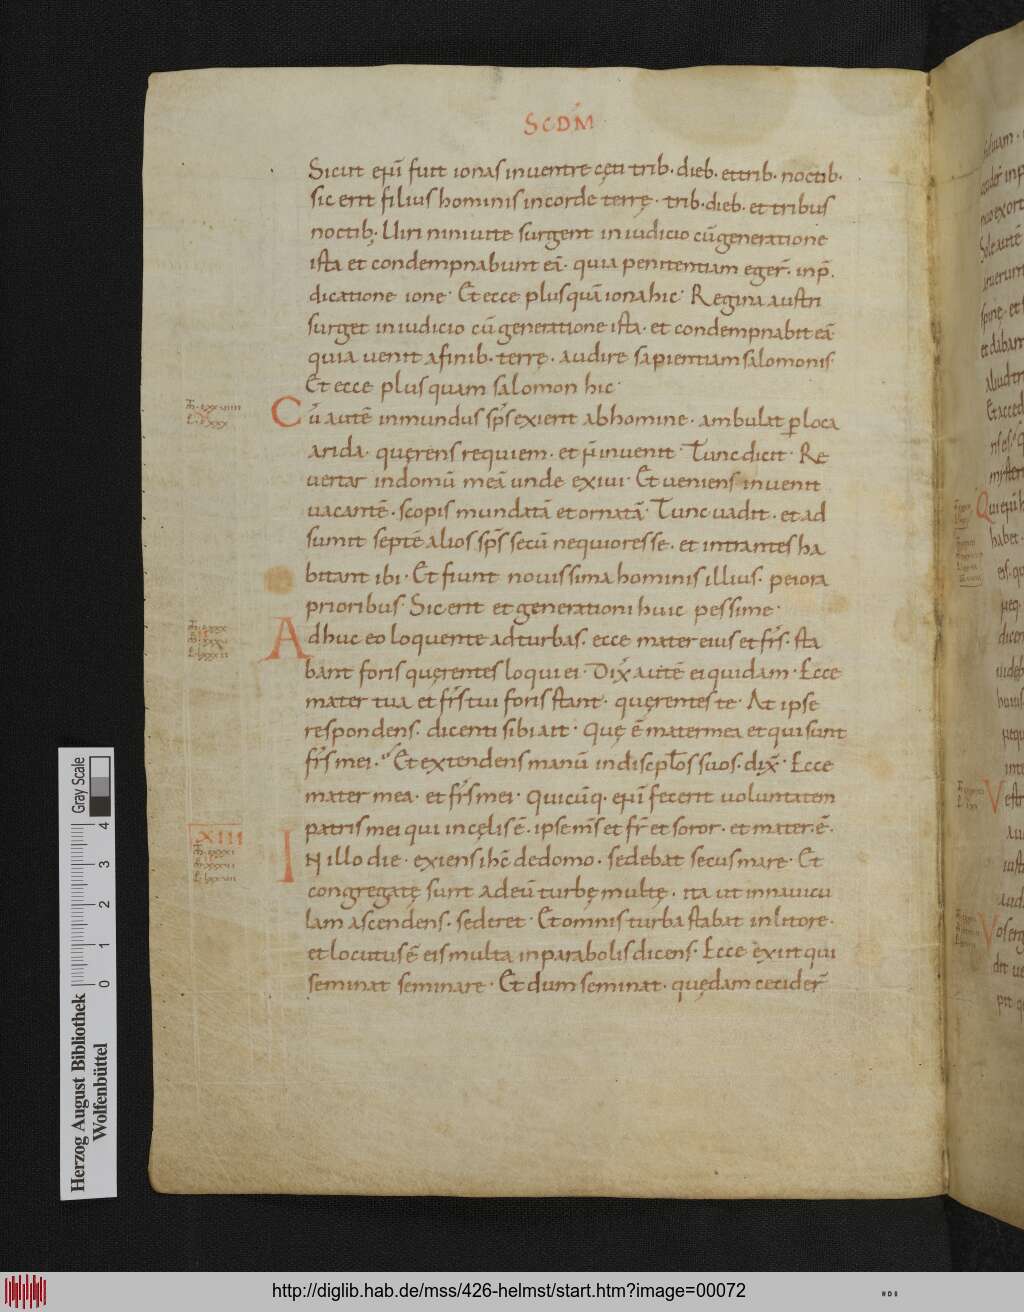 SCDM̅
Sicut eni̅ fuit ionas in ventre cęti trib· dieb· et trib· noctib·
sic erit filius hominis in corde terrę· trib· dieb· et tribus
noctib;· Uiri niniuite surgent in iudicio cu̅ generatione
ista et condempnabunt ea̅· quia penitentiam eger̅· in p̅
dicatione ione· Et ecce plus qua̅ iona hic· Regina austri
surget in iudicio cu̅ generatione ista· et condempnabit ea̅·
quia uenit a finib· terrę· audire sapientiam salomonis
Et ecce plus quam salomon hic·
Cu̅ aute̅ inmundus sp̅s exierit ab homine· ambulat ꝑ loca
arida· quęrens requiem· et n̅ inuenit· Tunc dicit· Re
uertar in domu̅ mea̅ unde exiui· Et ueniens inuenit
uacante̅· scopis mundata̅ et ornata̅· Tunc uadit· et ad
sumit septe̅ alios sp̅s secu̅ nequiores se· et intrantes ha
bitant ibi· Et fiunt nouissima hominis illius· peiora
prioribus· Sic erit et generationi huic pessime·
Adhuc eo loquente ad turbas· ecce mater eius et fr̅s· sta
bant foris quęrentes loqui ei· Dix̅ aute̅ ei quidam· Ecce
mater tua et fr̅s tui foris stant· quęrentes te· At ipse
respondens· dicenti sibi ait· Quę e̅ mater mea et qui sunt
fr̅s mei· Et extendens manu̅ in discipl̅os suos· dix̅· Ecce
mater mea· et fr̅s mei· Quicu̅q· eni̅ fecerit uoluntatem
patris mei qui in cęlis e̅· ipse m̅s et fr̅ et soror· et mater· e̅·
XIII
IN illo die· exiens ihc̅ de domo· sedebat secus mare· Et
congregatę sunt ad eu̅ turbę multę· ita ut in nauicu
lam ascendens· sederet· Et omnis turba stabat in litore·
et locutus e̅ eis multa in parabolis dicens· Ecce exiit qui
seminat seminare· Et dum seminat· quędam cecider̅
Gray Scale
4 3 2 1 0
Herzog August Bibliothek
Wolfenbüttel
http://diglib.hab.de/mss/426-helmst/start.htm?image=00072